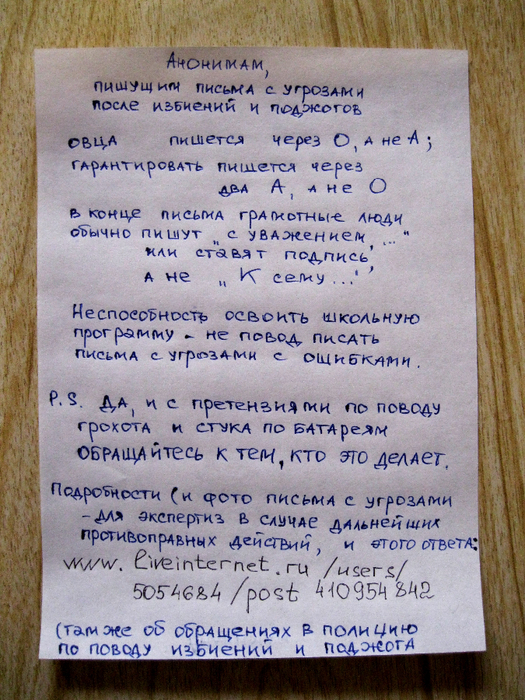 Анонимам,
пишущим письма с угрозами
после избиений и поджогов
овца пишется через О, а не А;
гарантировать пишется через
два А, а не О
в конце письма грамотные люди
обычно пишут „с уважением, ..."
или ставят подпись,
а не „К сему..."
Неспособность освоить школьную
программу - не повод писать
письма с угрозами с ошибками.
P.S. Да, и с претензиями по поводу
грохота и стука по батареям
обращайтесь к тем, кто это делает.
Подробности (и фото письма с угрозами
- для экспертиз в случае дальнейших
противоправных действий, и этого ответа:
www.liveinternet.ru/users/
5054684/post 410954842
(там же об обращениях в полицию
по поводу избиений и поджога